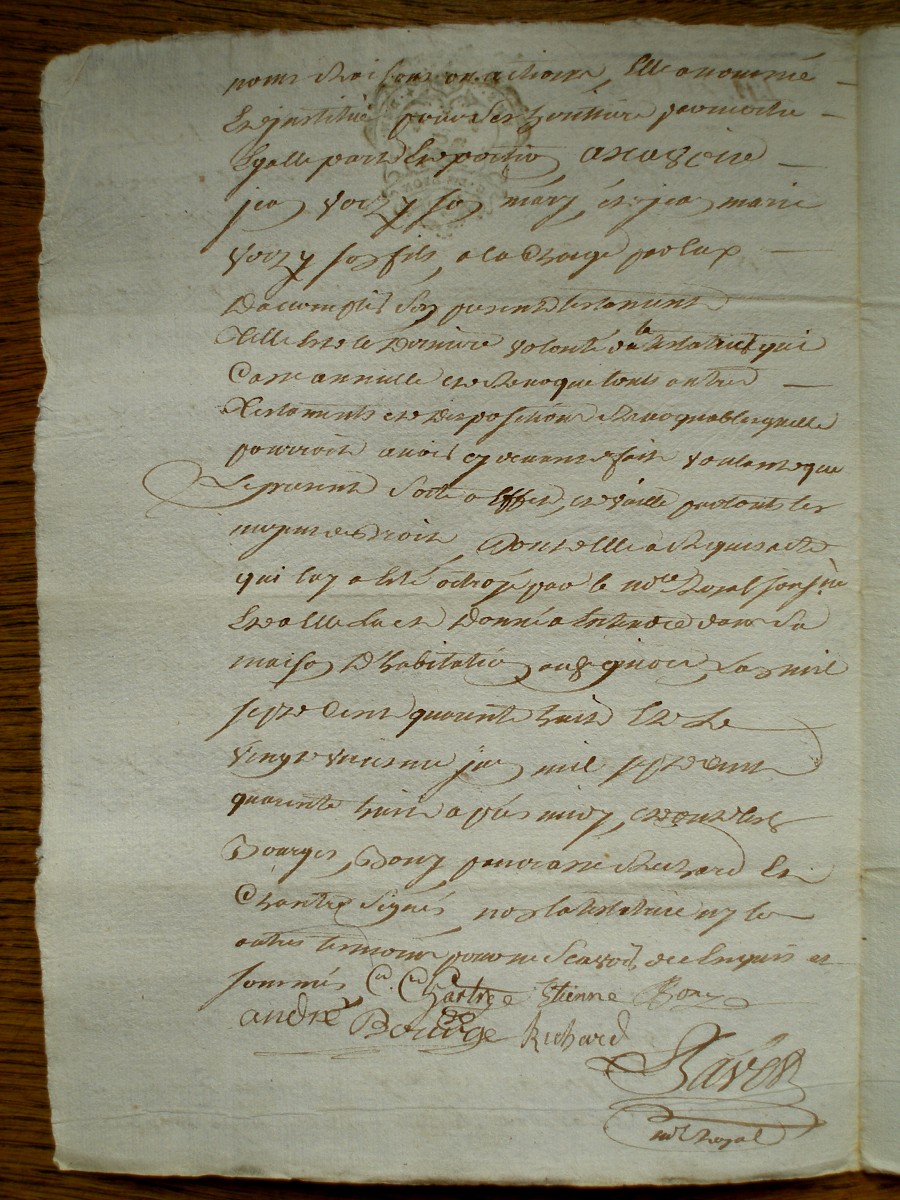 noms Raisons ou actions, Elle a nommé
Et institué pour ses heritiers par
Egalle part Et portion
jean Voizy son mary, et jean marie
Voizy son fils, a la Charge par Eux
Daccomplir son present testament
Telle Est le Derniere volonté de la testatrice qui
Casse annulle et Revoque touts autres
Testaments et dispositions Revoquables quelle
pourroit avoir cy devant fait voulant que
Le present sorte a Effet, et vaille par touts les
moyens de Droit, Dont Elle a Requis acte
qui luy a Eté octroyé par le nore Royal soussigné
Et a Elle Lu et Donné a Entendre dans sa
maison D'habitation Lan mil
sept Cent quarente huit Et Le
Vingt jan mil sept Cent
quarente huit apres midy, et ont les
Bourges, Bony Richard Et
Chartre signés non la testatrice ny les
autres temoins pour ne scavoir de ce Enquis et
sommés C. Chartre Etienne Bony
andré Bourge Richard
Ravel
nore Royal